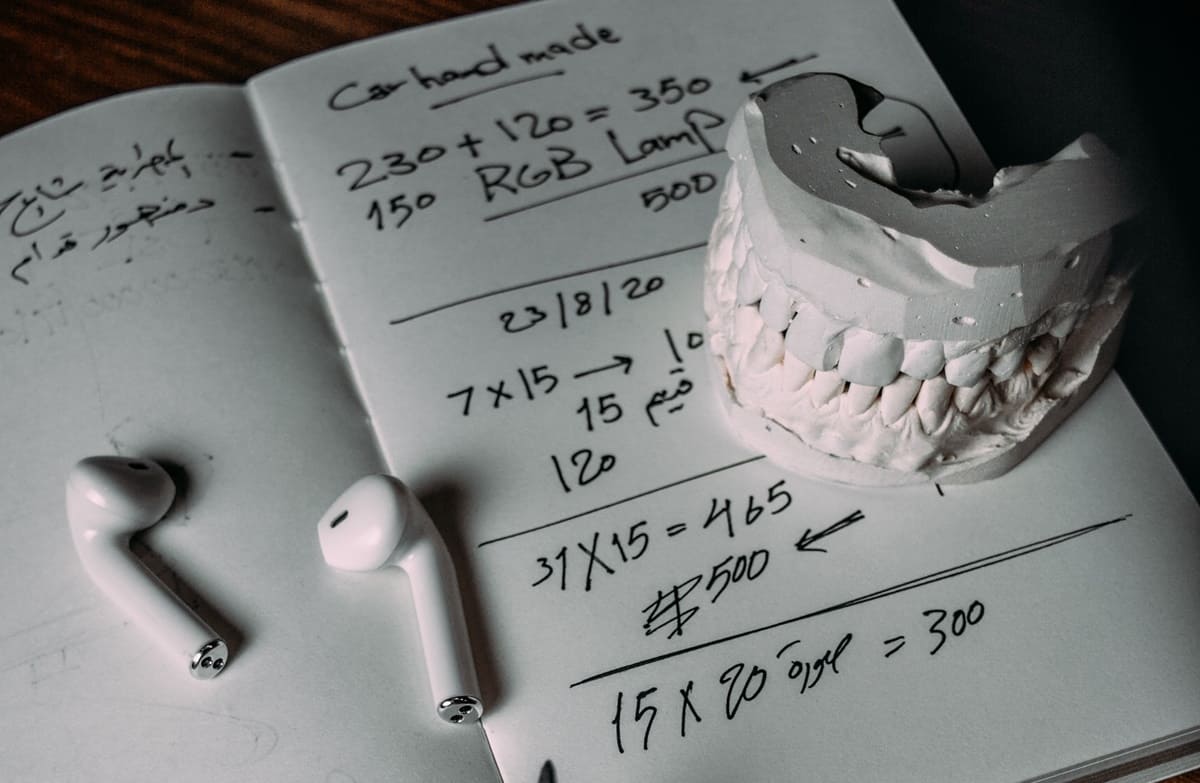 Car hand made
230 + 120 = 350 ←
150 RGB Lamp
500
23/8/20
7 x 15 → 10
15 فيم
120
31 X 15 = 465
500 ←
15 X 20 صورة = 300
دمنهور قدام -